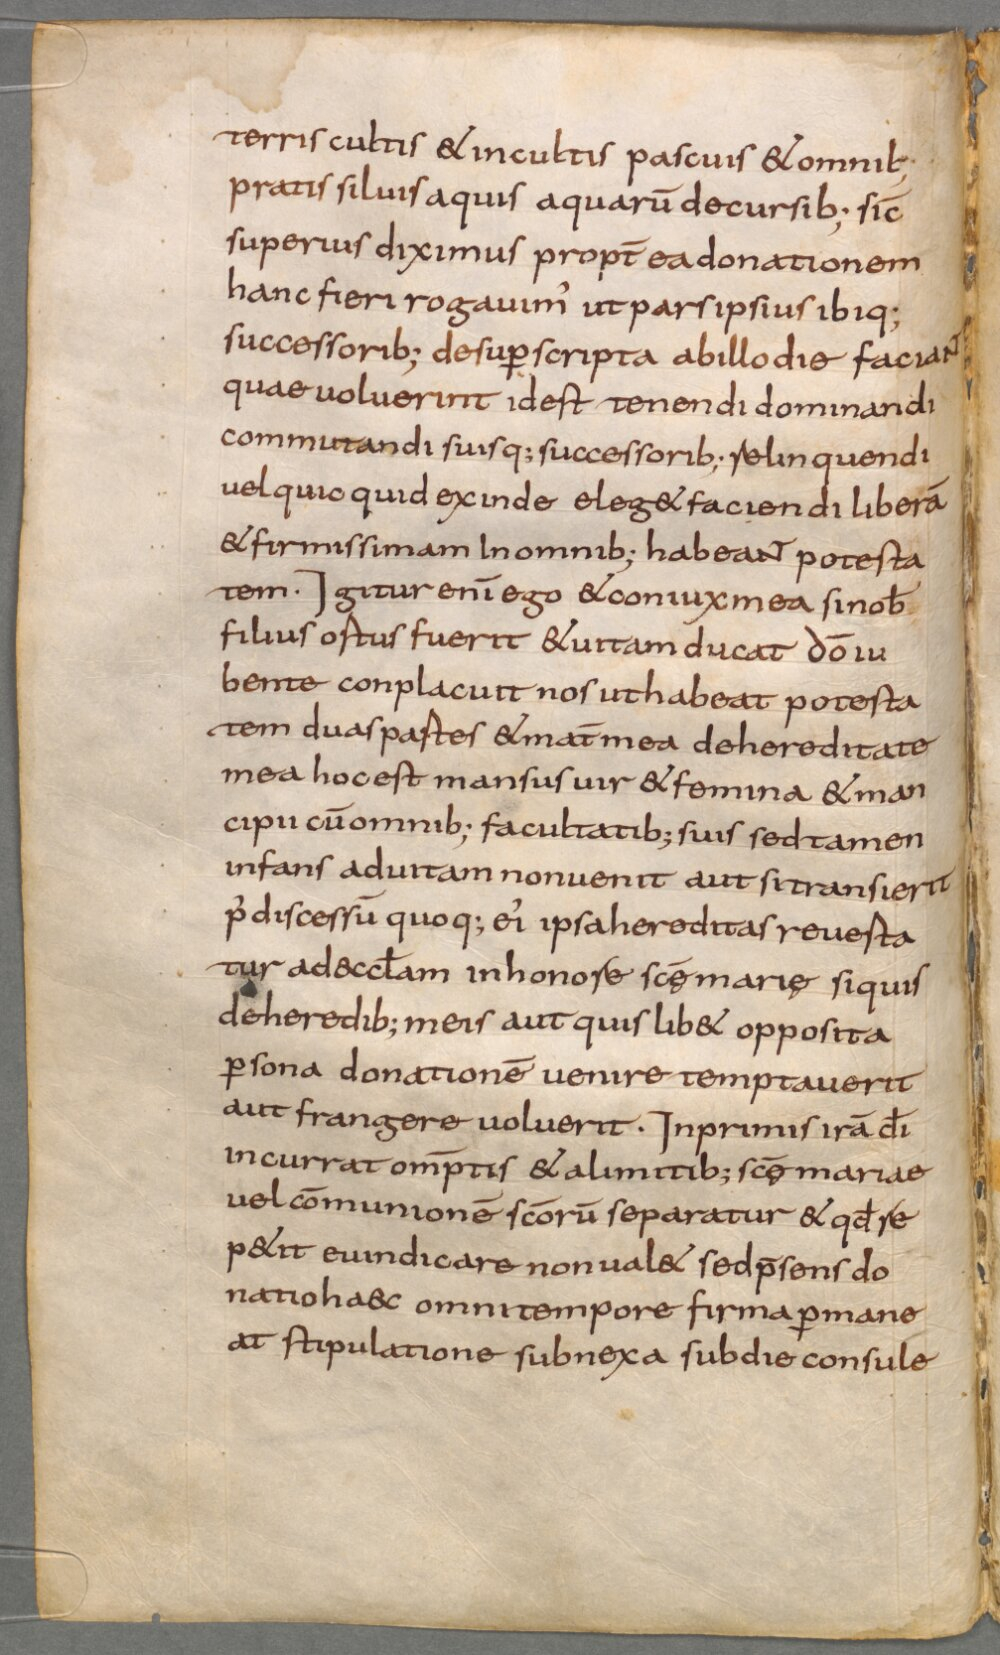 terris cultis & incultis pascuis & omnib;
pratis siluis aquis aquarū decursib; sic̄
superius diximus propt̄ ea donationem
hanc fieri rogauim᾿ ut pars ipsius ibiq;
successorib; desup̱scripta ab illo die faciant
quae uoluerint id est tenendi dominandi
commutandi suisq; successorib; relinquendi
uel quic quid exinde eleg& faciendi liberā
& firmissimam In omnib; habeant potesta
tem. Igitur eni᷄ ego & coniux mea sinob̄
filius ortus fuerit & uitam ducat dō iu
bente conplacuit nos ut habeat potesta
tem duas partes & mat̄ mea de hereditate
mea hoc est mansus uir & femina & man
cipii cū omnib; facultatib; suis sed tamen
infans ad uitam non uenit aut si transierit
p᾿ discessū quoq; ei᾿ ipsa hereditas reuesta
tur ad ęccl̄am in honore scę̄ marię siquis
de heredib; meis aut quis lib& opposita
p̱sona donationē uenire temptauerit
aut frangere uoluerit. In primis irā dī
incurrat om̄ptis & a limitib; scę̄ mariae
uel cōmunionē scōrū separatur & qd̄ re
p&it euindicare non ual& sed p̄sens do
natio haec omni tempore firma p̱mane
at stipulatione subnexa sub die consule